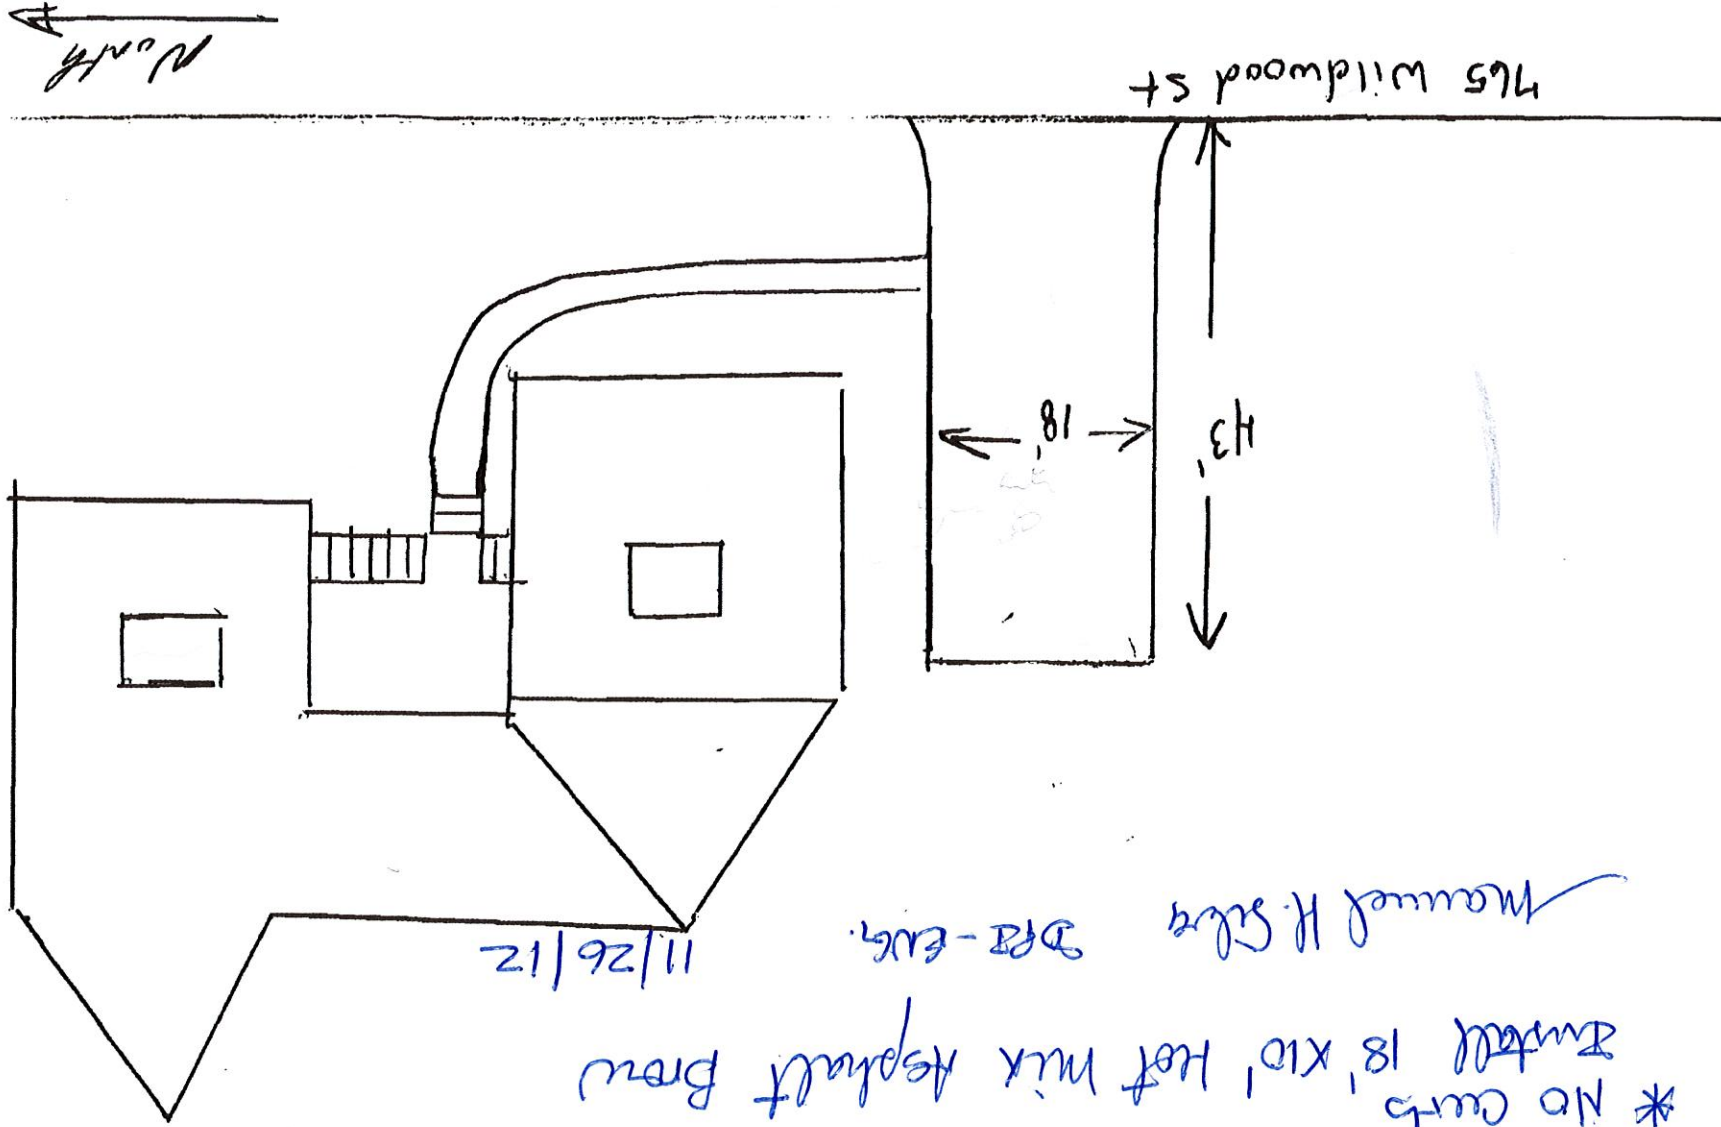 * No Curbs
Install 18' x10' Hot mix Asphalt Brow
Manuel H. Silva DPW-ENG. 11/26/12
43'
18'
765 Wildwood St
North